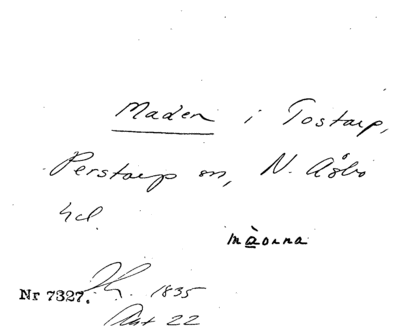 Maden i Tostarp,
Perstorp sn, N. Åsbo
hd.
màrna
Nr 7327. 1835
Akt 22